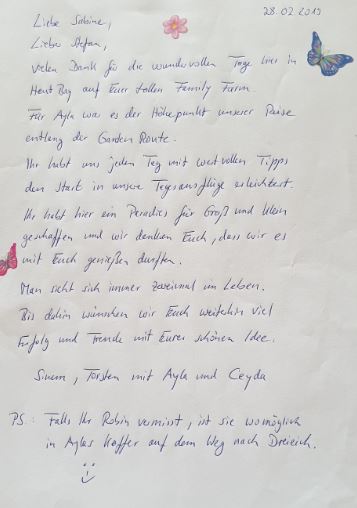 28.02.2019
Liebe Sabine,
Lieber Stefan,
vielen Dank für die wundervollen Tage hier in
Hout Bay auf Eurer tollen Family Farm.
Für Ayla war es der Höhepunkt unserer Reise
entlang der Garden Route.
Ihr habt uns jeden Tag mit wertvollen Tipps
den Start in unsere Tagesausflüge erleichtert.
Ihr habt hier ein Paradies für Groß und Klein
geschaffen und wir danken Euch, dass wir es
mit Euch genießen durften.
Man sieht sich immer zweimal im Leben.
Bis dahin wünschen wir Euch weiterhin viel
Erfolg und Freude mit Eurer schönen Idee.
Sinem, Torsten mit Ayla und Ceyda
PS: Falls Ihr Robin vermisst, ist sie womöglich
in Aylas Koffer auf dem Weg nach Dreieich.